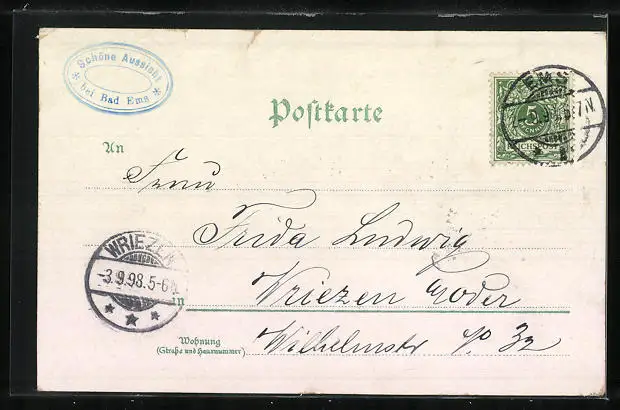 Schöne Aussicht
* bei Bad Ems *
EMS
5
REICHSPOST
Postkarte
An
Frau
Frida Ludwig
WRIEZEN
-3.9.98.5-6N.
in
Wriezen a/Oder
Wohnung
(Straße und Hausnummer)
Wilhelmstr No 32